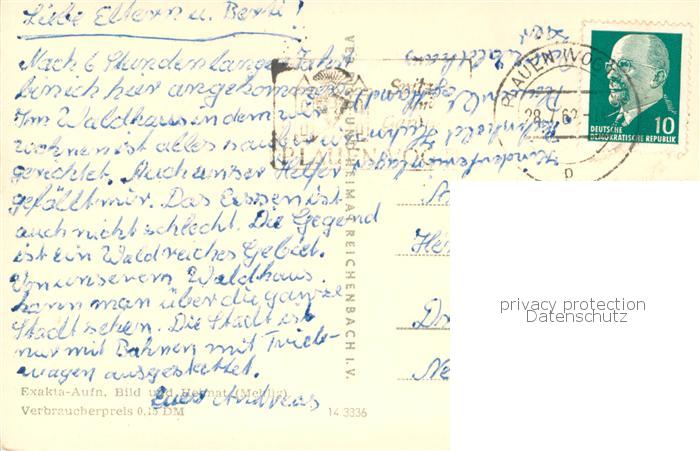 Liebe Eltern u. Berti!
Nach 6 Stundenlanger Fahrt
bin ich hier angekommen.
Im Waldhaus in dem wir
wohnen ist alles
gerichtet. Auch unser Helfer
gefällt mir. Das Essen ist
auch nicht schlecht. Die Gegend
ist ein Waldreiches Gebiet.
Von unserem Waldhaus
kann man über die ganze
Stadt sehen. Die Stadt ist
nur mit Bahnen mit Trieb-
wagen ausgestattet.
Euer Andreas
Exakta-Aufn. Bild und Heimat (Mehlig)
Verbraucherpreis 0,15 DM
14 3336
UND HEIMAT REICHENBACH I. V.
Kinderferienlager
Reinhold Huhn
Waldhaus
PLAUEN (VOGTL
28.7.62
p
DEUTSCHE
DEMOKRATISCHE REPUBLIK
10
privacy protection
Datenschutz